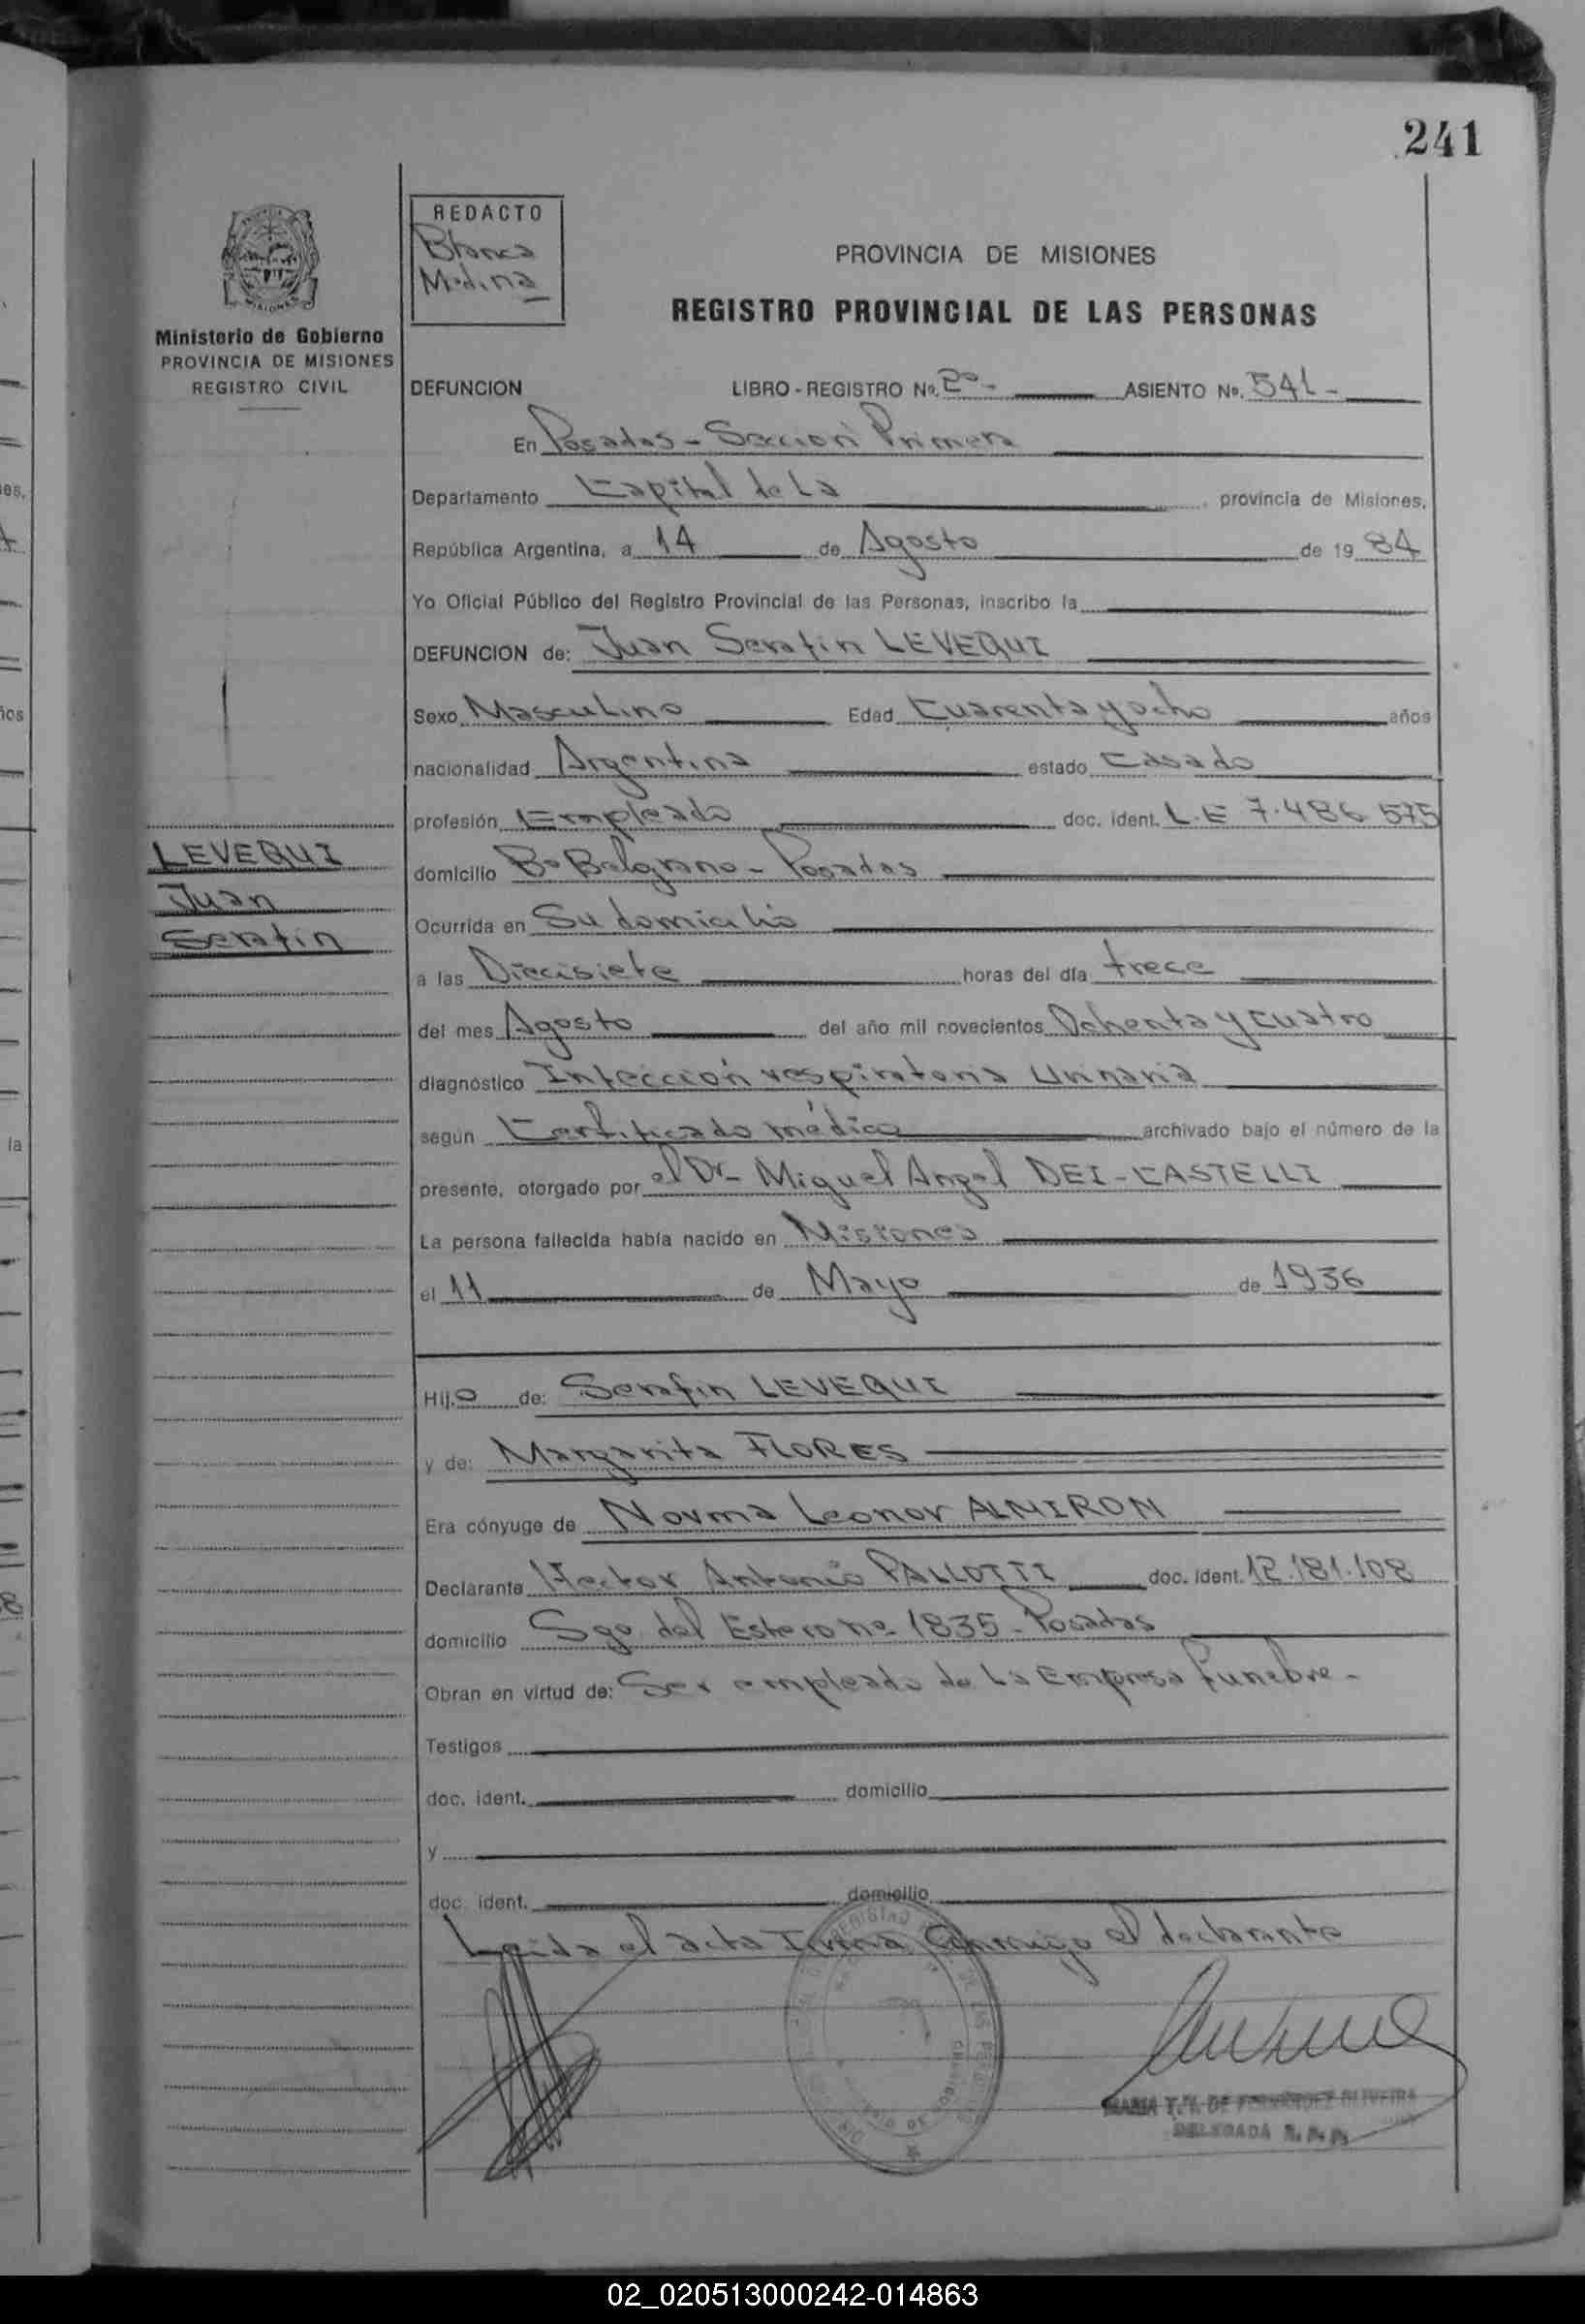 241
REDACTO
Blanca
Medina
PROVINCIA DE MISIONES
REGISTRO PROVINCIAL DE LAS PERSONAS
MISIONES
Ministerio de Gobierno
PROVINCIA DE MISIONES
REGISTRO CIVIL
DEFUNCION LIBRO - REGISTRO No. 2º- ASIENTO No. 541-
En Posadas - Sección Primera
Departamento Capital de La provincia de Misiones,
República Argentina, a 14 de Agosto de 19 84
Yo Oficial Público del Registro Provincial de las Personas, inscribo la
DEFUNCION de: Juan Serafin LEVEQUI
Sexo Masculino Edad Cuarenta y ocho años
nacionalidad Argentina estado Casado
profesión Empleado doc. ident. L.E 7.486.575
domicilio Bº Belgrano - Posadas
Ocurrida en Su domicilio
a las Diecisiete horas del día trece
del mes Agosto del año mil novecientos Ochenta y cuatro
diagnóstico Infección respiratoria Urinaria
según Certificado médico archivado bajo el número de la
presente, otorgado por el Dr- Miguel Angel DEI-CASTELLI
La persona fallecida había nacido en Misiones
el 11 de Mayo de 1936
LEVEQUI
Juan
Serafin
Hij.o de: Serafin LEVEQUI
y de: Margarita FLORES
Era cónyuge de Norma Leonor ALMIRON
Declarante Hector Antonio PALLOTTI doc. ident. 12.181.108
domicilio Sgo. del Estero nº 1835 - Posadas
Obran en virtud de: Ser empleado de La Empresa funebre -
Testigos
doc. ident. domicilio
y
doc. ident. domicilio
Leida el acta Firma Conmigo el declarante
MARIA T. V. DE FERNANDEZ OLIVEIRA
DELEGADA R.P.P.
02_020513000242-014863